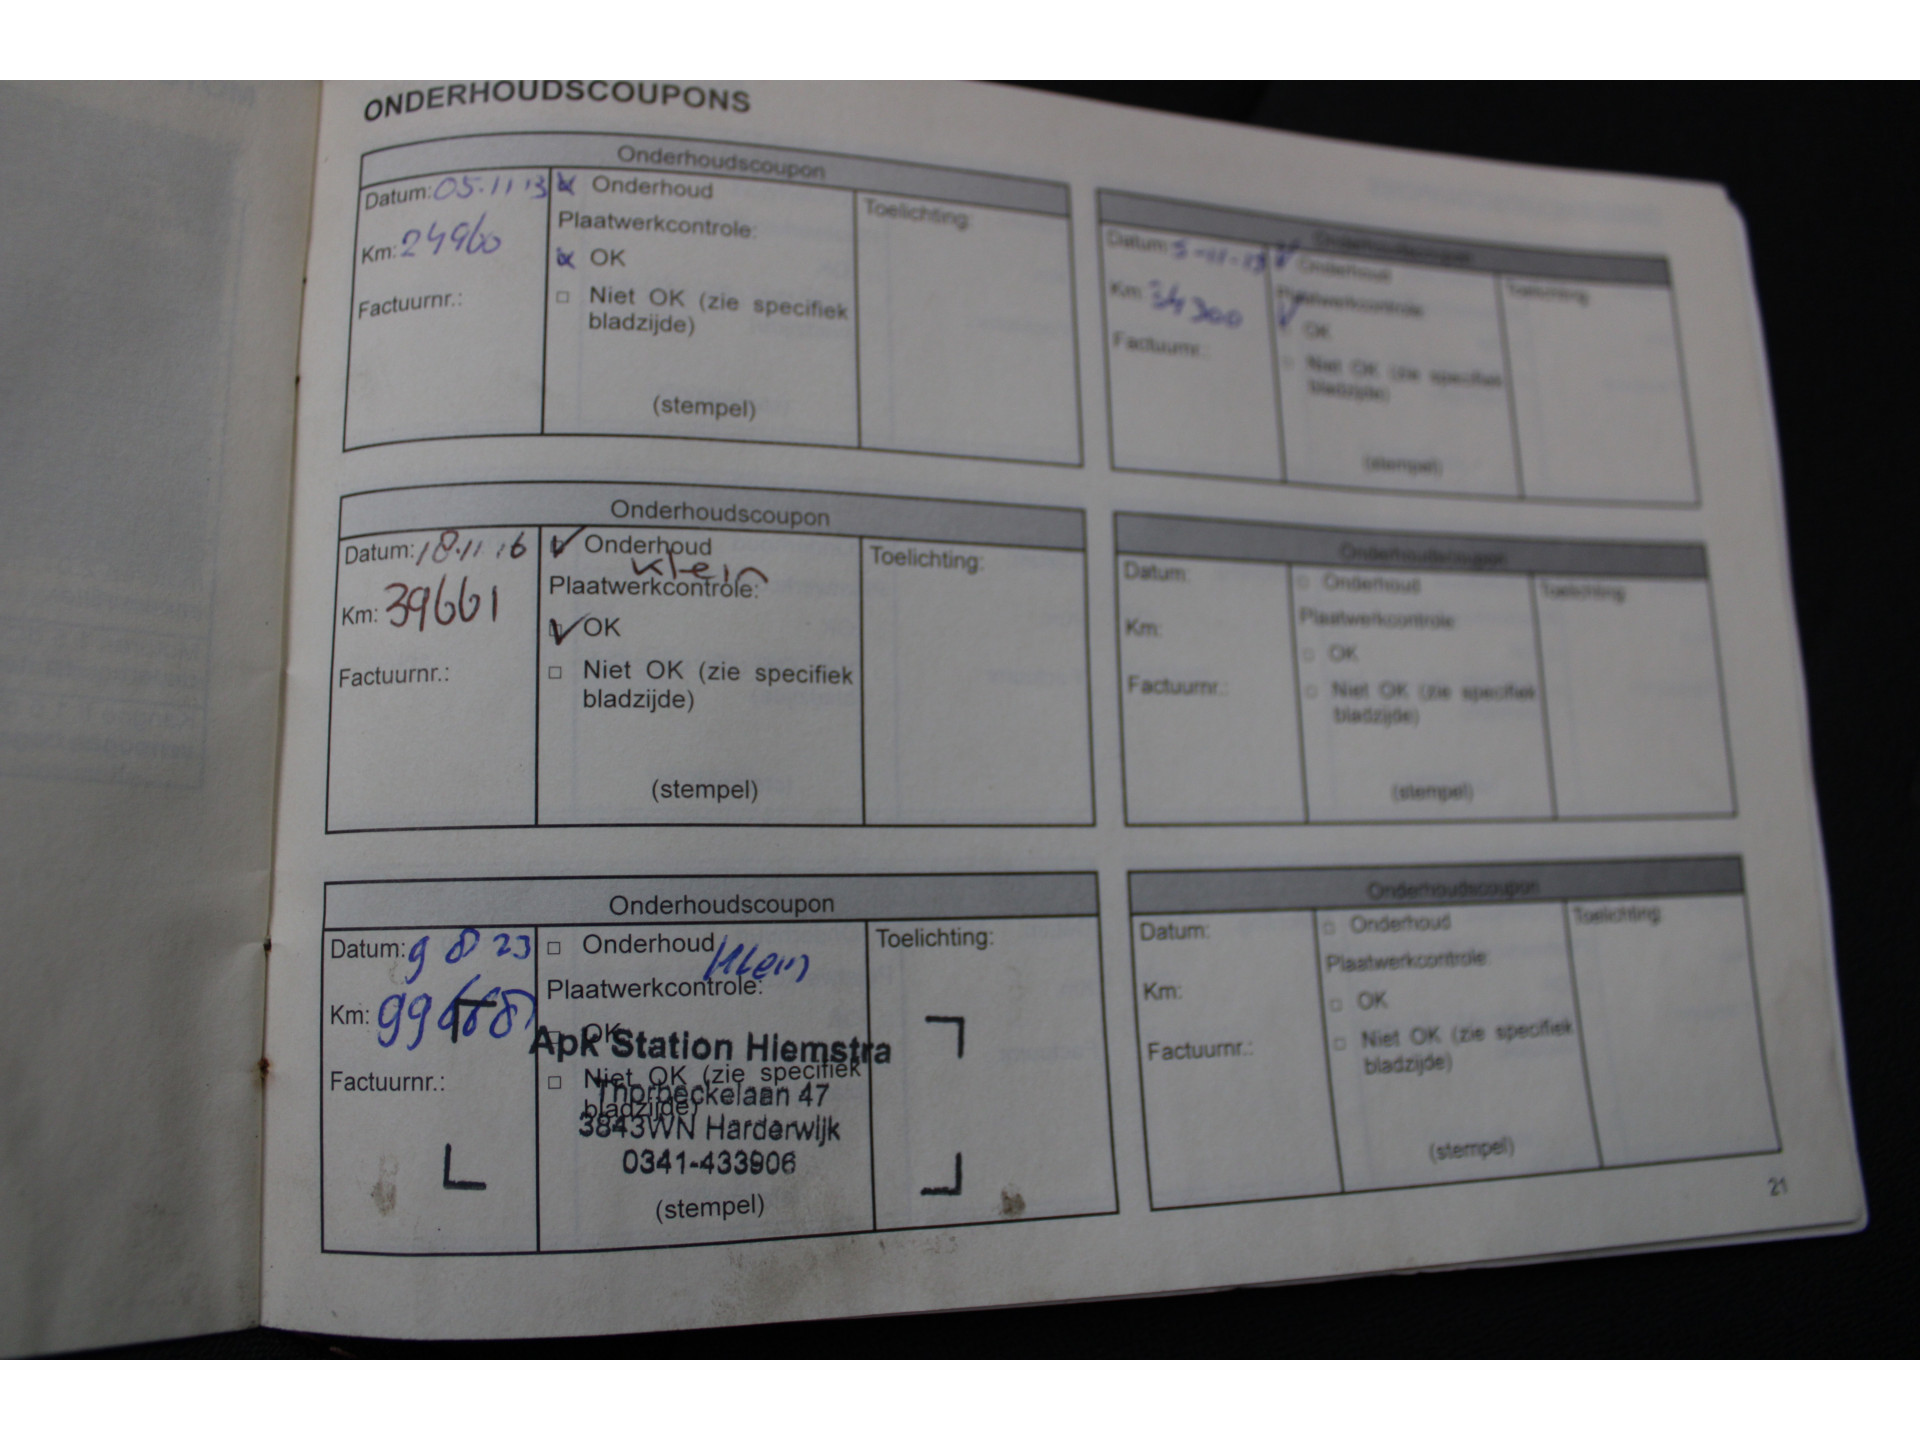 ONDERHOUDSCOUPONS
Onderhoudscoupon
Datum: 05.11 13
Km: 24960
Factuurnr.:
Onderhoud
Plaatwerkcontrole:
OK
Niet OK (zie specifiek
bladzijde)
(stempel)
Toelichting:
Onderhoudscoupon
Datum:
Km: 34300
Factuurnr.:
Onderhoud
Plaatwerkcontrole
OK
Niet OK (zie specifiek
bladzijde)
(stempel)
Toelichting:
Onderhoudscoupon
Datum: 18.11.16
Km: 39661
Factuurnr.:
Onderhoud
klein
Plaatwerkcontrole:
OK
Niet OK (zie specifiek
bladzijde)
(stempel)
Toelichting:
Onderhoudscoupon
Datum:
Km:
Factuurnr.:
Onderhoud
Plaatwerkcontrole:
OK
Niet OK (zie specifiek
bladzijde)
(stempel)
Toelichting:
Onderhoudscoupon
Datum: 9 8 23
Km:
Factuurnr.:
Onderhoud klein
Plaatwerkcontrole:
OK
Niet OK (zie specifiek
bladzijde)
Apk Station Hiemstra
Thorbeckelaan 47
3843WN Harderwijk
0341-433906
(stempel)
Toelichting:
Onderhoudscoupon
Datum:
Km:
Factuurnr.:
Onderhoud
Plaatwerkcontrole:
OK
Niet OK (zie specifiek
bladzijde)
(stempel)
Toelichting:
21